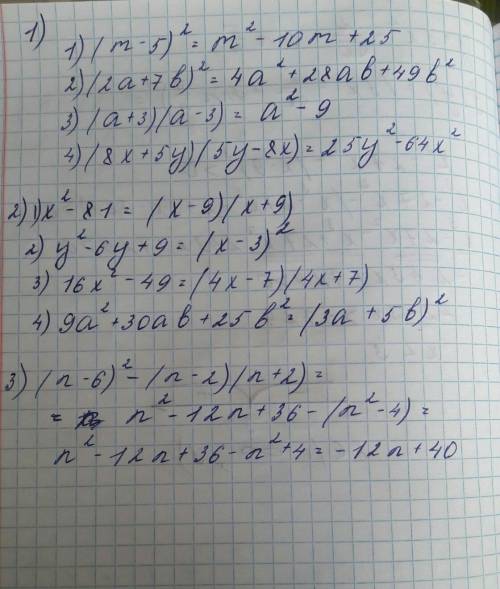 1)
1) (m-5)² = m² - 10m + 25
2) (2a+7b)² = 4a² + 28ab + 49b²
3) (a+3)(a-3) = a² - 9
4) (8x+5y)(5y-8x) = 25y² - 64x²
2) 1) x² - 81 = (x-9)(x+9)
2) y² - 6y + 9 = (x-3)²
3) 16x² - 49 = (4x-7)(4x+7)
4) 9a² + 30ab + 25b² = (3a + 5b)²
3) (n-6)² - (n-2)(n+2) =
= n² - 12n + 36 - (n² - 4) =
n² - 12n + 36 - n² + 4 = -12n + 40